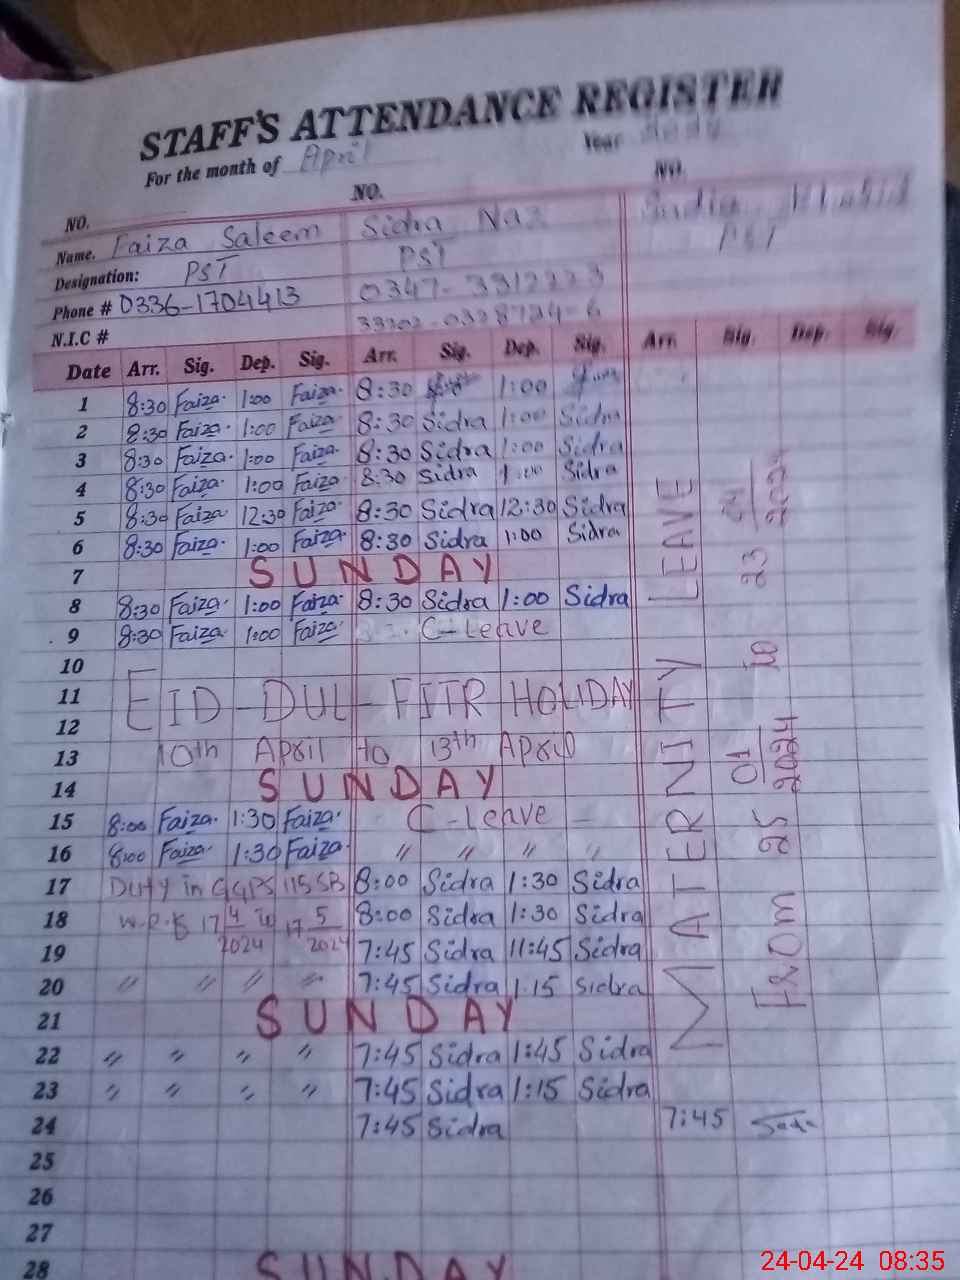 STAFF'S ATTENDANCE REGISTER
For the month of April Year
NO. NO. NO.
Name. Faiza Saleem Sidra Naz Sadia Khalid
Designation: PST PST PST
Phone # 0336-1704413 0347-3312223
N.I.C #
Date Arr. Sig. Dep. Sig. Arr. Sig. Dep. Sig. Arr. Sig. Dep. Sig.
1 8:30 Faiza. 1:00 Faiza. 8:30 1:00
2 8:30 Faiza. 1:00 Faiza. 8:30 Sidra 1:00 Sidra
3 8:30 Faiza. 1:00 Faiza. 8:30 Sidra 1:00 Sidra
4 8:30 Faiza. 1:00 Faiza. 8:30 Sidra 1:00 Sidra
5 8:30 Faiza. 12:30 Faiza. 8:30 Sidra 12:30 Sidra
6 8:30 Faiza. 1:00 Faiza. 8:30 Sidra 1:00 Sidra
7 SUNDAY
8 8:30 Faiza. 1:00 Faiza. 8:30 Sidra 1:00 Sidra
9 8:30 Faiza. 1:00 Faiza. C-Leave
10
11 EID-DUL-FITR HOLIDAY
12
13 10th April to 13th April
14 SUNDAY
15 8:00 Faiza. 1:30 Faiza. C-Leave -
16 8:00 Faiza. 1:30 Faiza. " " " "
17 Duty in GGPS 115 SB 8:00 Sidra 1:30 Sidra
18 17 4/2024 to 17 5/2024 8:00 Sidra 1:30 Sidra
19 7:45 Sidra 11:45 Sidra
20 " " " " 7:45 Sidra 1:15 Sidra
21 SUNDAY
22 " " " " 7:45 Sidra 1:45 Sidra
23 " " " " 7:45 Sidra 1:15 Sidra
24 7:45 Sidra 7:45
25
26
27
28 SUNDAY
MATERNITY LEAVE
From 25 01/2024 to 23 04/2024
24-04-24 08:35